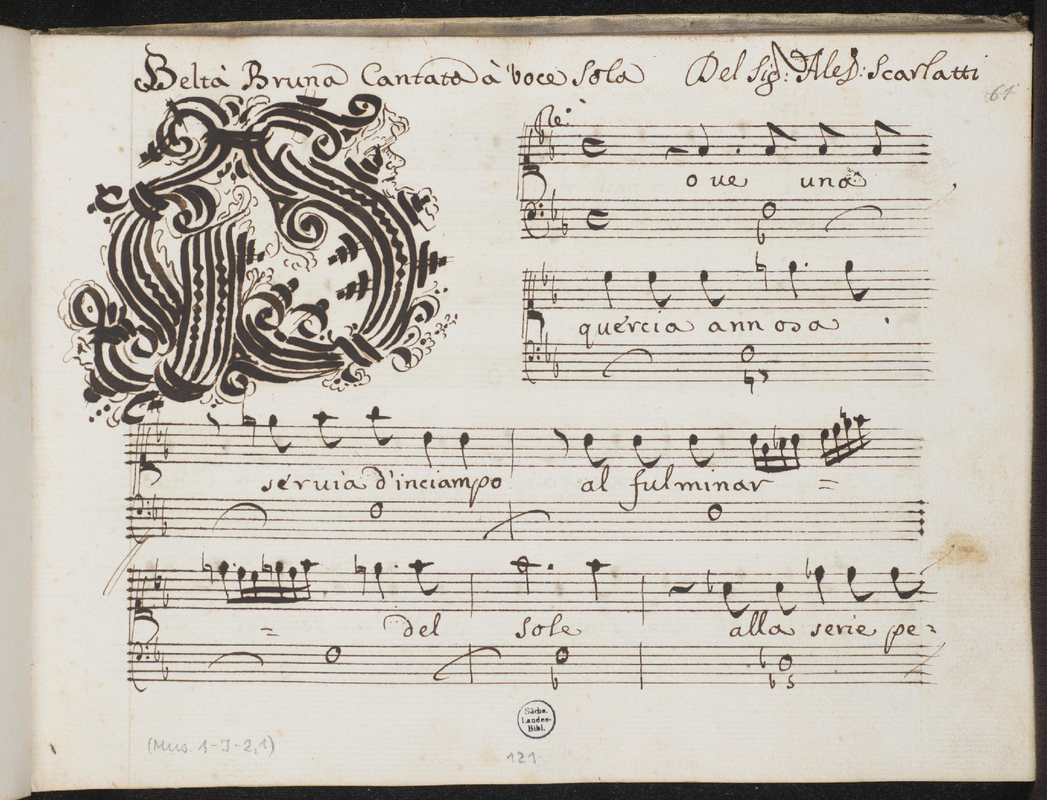 Beltà Bruna Cantata à Voce Sola Del Sig: Ales: Scarlatti
61
Re:
ove una
quercia annosa
servia d'inciampo al fulminar =
= del sole alla serie pe=
Sächs.
Landes-
Bibl.
(Mus. 1-J-2,1)
121